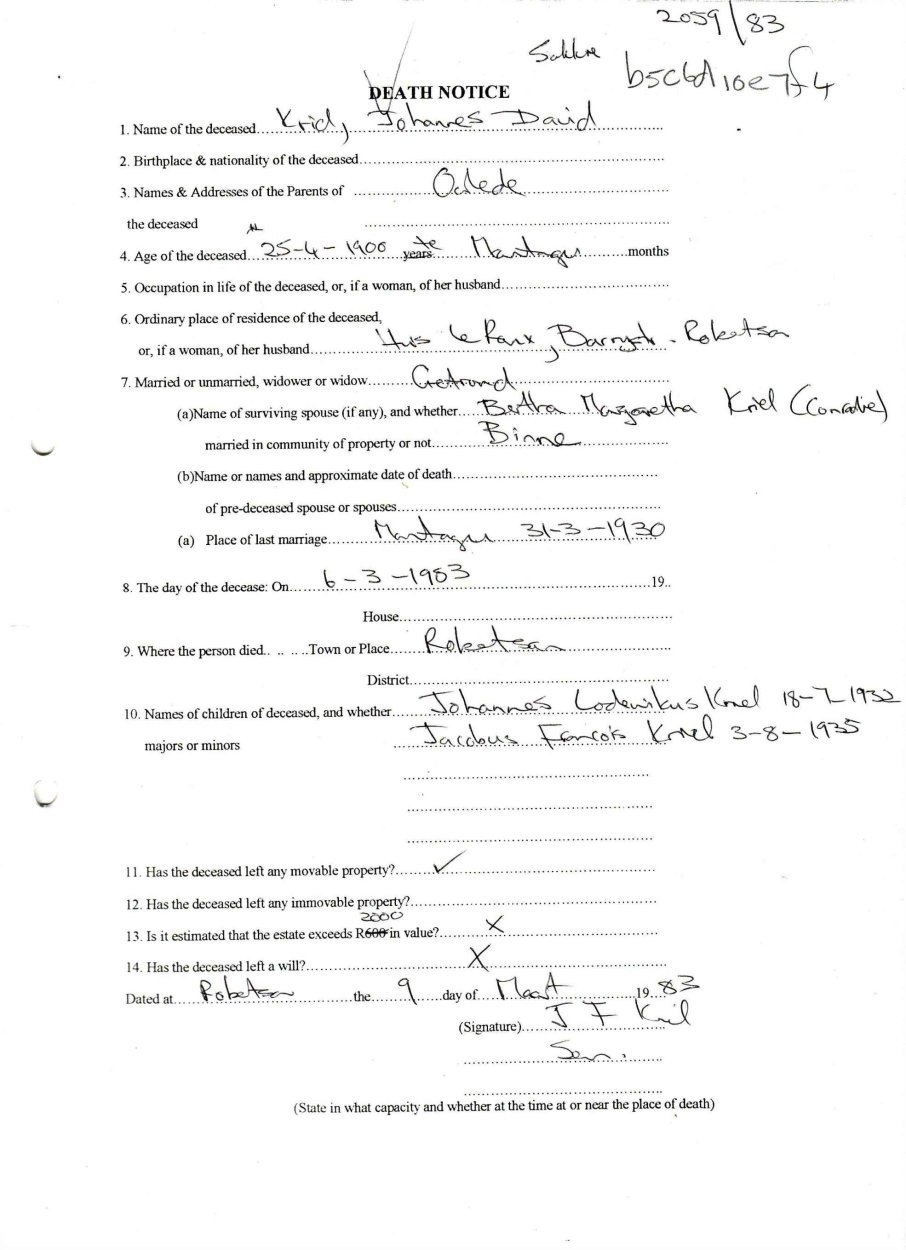 2059/83
b5c6d10e7f4
DEATH NOTICE
1. Name of the deceased....Kriel, Johannes David
2. Birthplace & nationality of the deceased
3. Names & Addresses of the Parents of
the deceased
4. Age of the deceased....25-4-1900 years te Montagu....months
5. Occupation in life of the deceased, or, if a woman, of her husband
6. Ordinary place of residence of the deceased,
or, if a woman, of her husband....Huis le Roux, Barrystr - Robertson
7. Married or unmarried, widower or widow....Getroud
(a)Name of surviving spouse (if any), and whether....Bertha Margaretha Kriel (Conradie)
married in community of property or not....Binne
(b)Name or names and approximate date of death
of pre-deceased spouse or spouses
(a) Place of last marriage....Montagu 31-3-1930
8. The day of the decease: On....6-3-1983....19..
House
9. Where the person died.. .. .. ..Town or Place....Robertson
District
10. Names of children of deceased, and whether....Johannes Lodewikus Kriel 18-7-1932
majors or minors....Jacobus Francois Kriel 3-8-1935
11. Has the deceased left any movable property?....✓
12. Has the deceased left any immovable property?
2000
13. Is it estimated that the estate exceeds R600 in value?....X
14. Has the deceased left a will?....X
Dated at....Robertson....the....9....day of....Maart....19..83
(Signature)....J F Kriel
Seun.
(State in what capacity and whether at the time at or near the place of death)